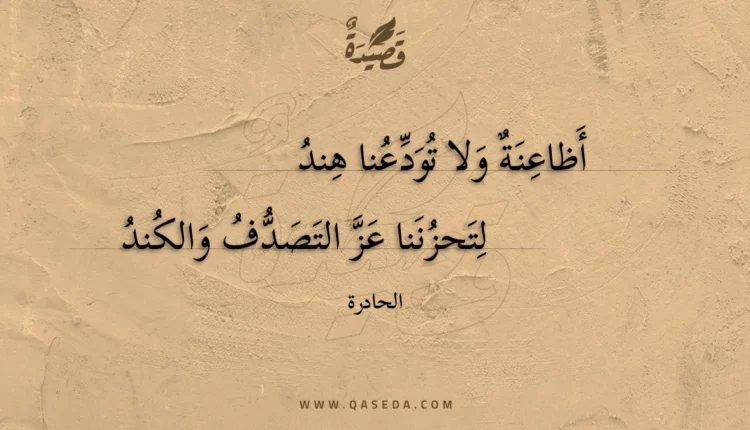 قَصِيدَةٌ
أَظاعِنَةٌ وَلا تُوَدِّعُنا هِندُ
لِتَحزُنَنا عَزَّ التَصَدُّفُ وَالكُندُ
الحادرة
WWW.QASEDA.COM